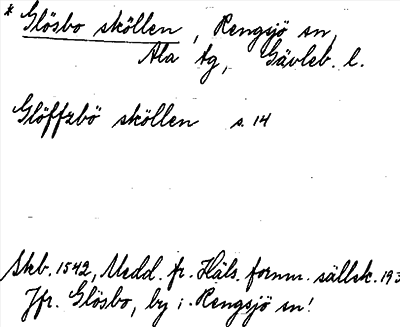 * Glösbo sköllen, Rengsjö sn,
Ala tg, Gävleb. l.
Glöffzbö sköllen s. 14
Skb. 1542, Medd. fr. Häls. fornm. sällsk. 193
Jfr. Glösbo, by i Rengsjö sn!